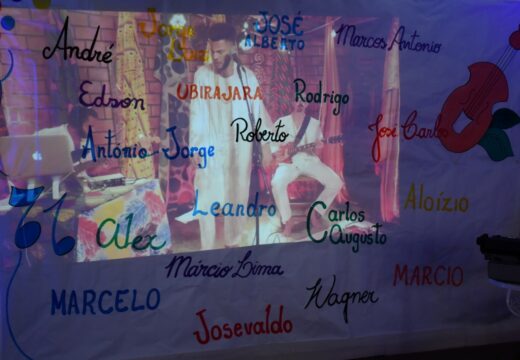 André
Jorge
Luiz
JOSÉ
ALBERTO
Marcos Antonio
Edson
UBIRAJARA
Rodrigo
António Jorge
Roberto
José Carlos
Leandro
Carlos
Augusto
Aloízio
Alex
Márcio Lima
MARCIO
MARCELO
Wagner
Josevaldo